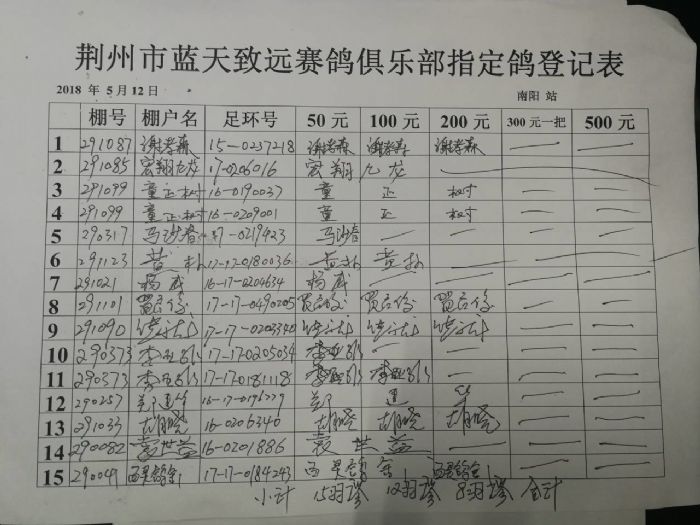 荆州市蓝天致远赛鸽俱乐部指定鸽登记表
2018 年 5月12日 南阳 站
棚号 棚户名 足环号 50元 100元 200元 300元一把 500元
1 291087 谢孝森 15-0237218 谢孝森 谢孝森 谢孝森 — —
2 291085 宏翔九龙 17-0206016 宏翔九龙
3 291099 童正树 16-0190037 童 正 树 — —
4 291099 童正树 16-0209001 童 正 树 — —
5 290317 马沙春 17-0219423 马沙春 — — — —
6 291123 黄朴 17-17-0180036 黄朴 黄朴 — — —
7 291021 杨威 16-17-0204634 杨威 — — — —
8 291101 17-17-0490205 — —
9 291090 17-17-0202340 — —
10 290373 17-17-0205034 — — — —
11 290373 17-17-0181118 — — —
12 290257 16-17-0196229 郑 — —
13 291033 胡晓 16-0206346 胡晓 胡晓 胡晓 — —
14 290082 袁世益 16-0201886 袁世益 — — —
15 290049 17-17-0184243 — —
小计 15羽 12羽 8羽 合计